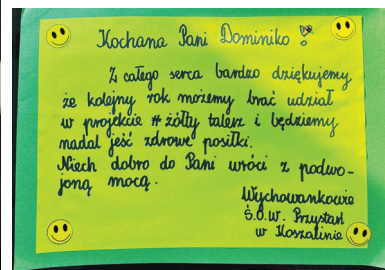 Kochana Pani Dominiko!
Z całego serca bardzo dziękujemy
że kolejny rok możemy brać udział
w projekcie #żółty talerz i będziemy
nadal jeść zdrowe posiłki.
Niech dobro do Pani wróci z podwo-
joną mocą.
Wychowankowie
Ś.O.W. Przystań
w Koszalinie